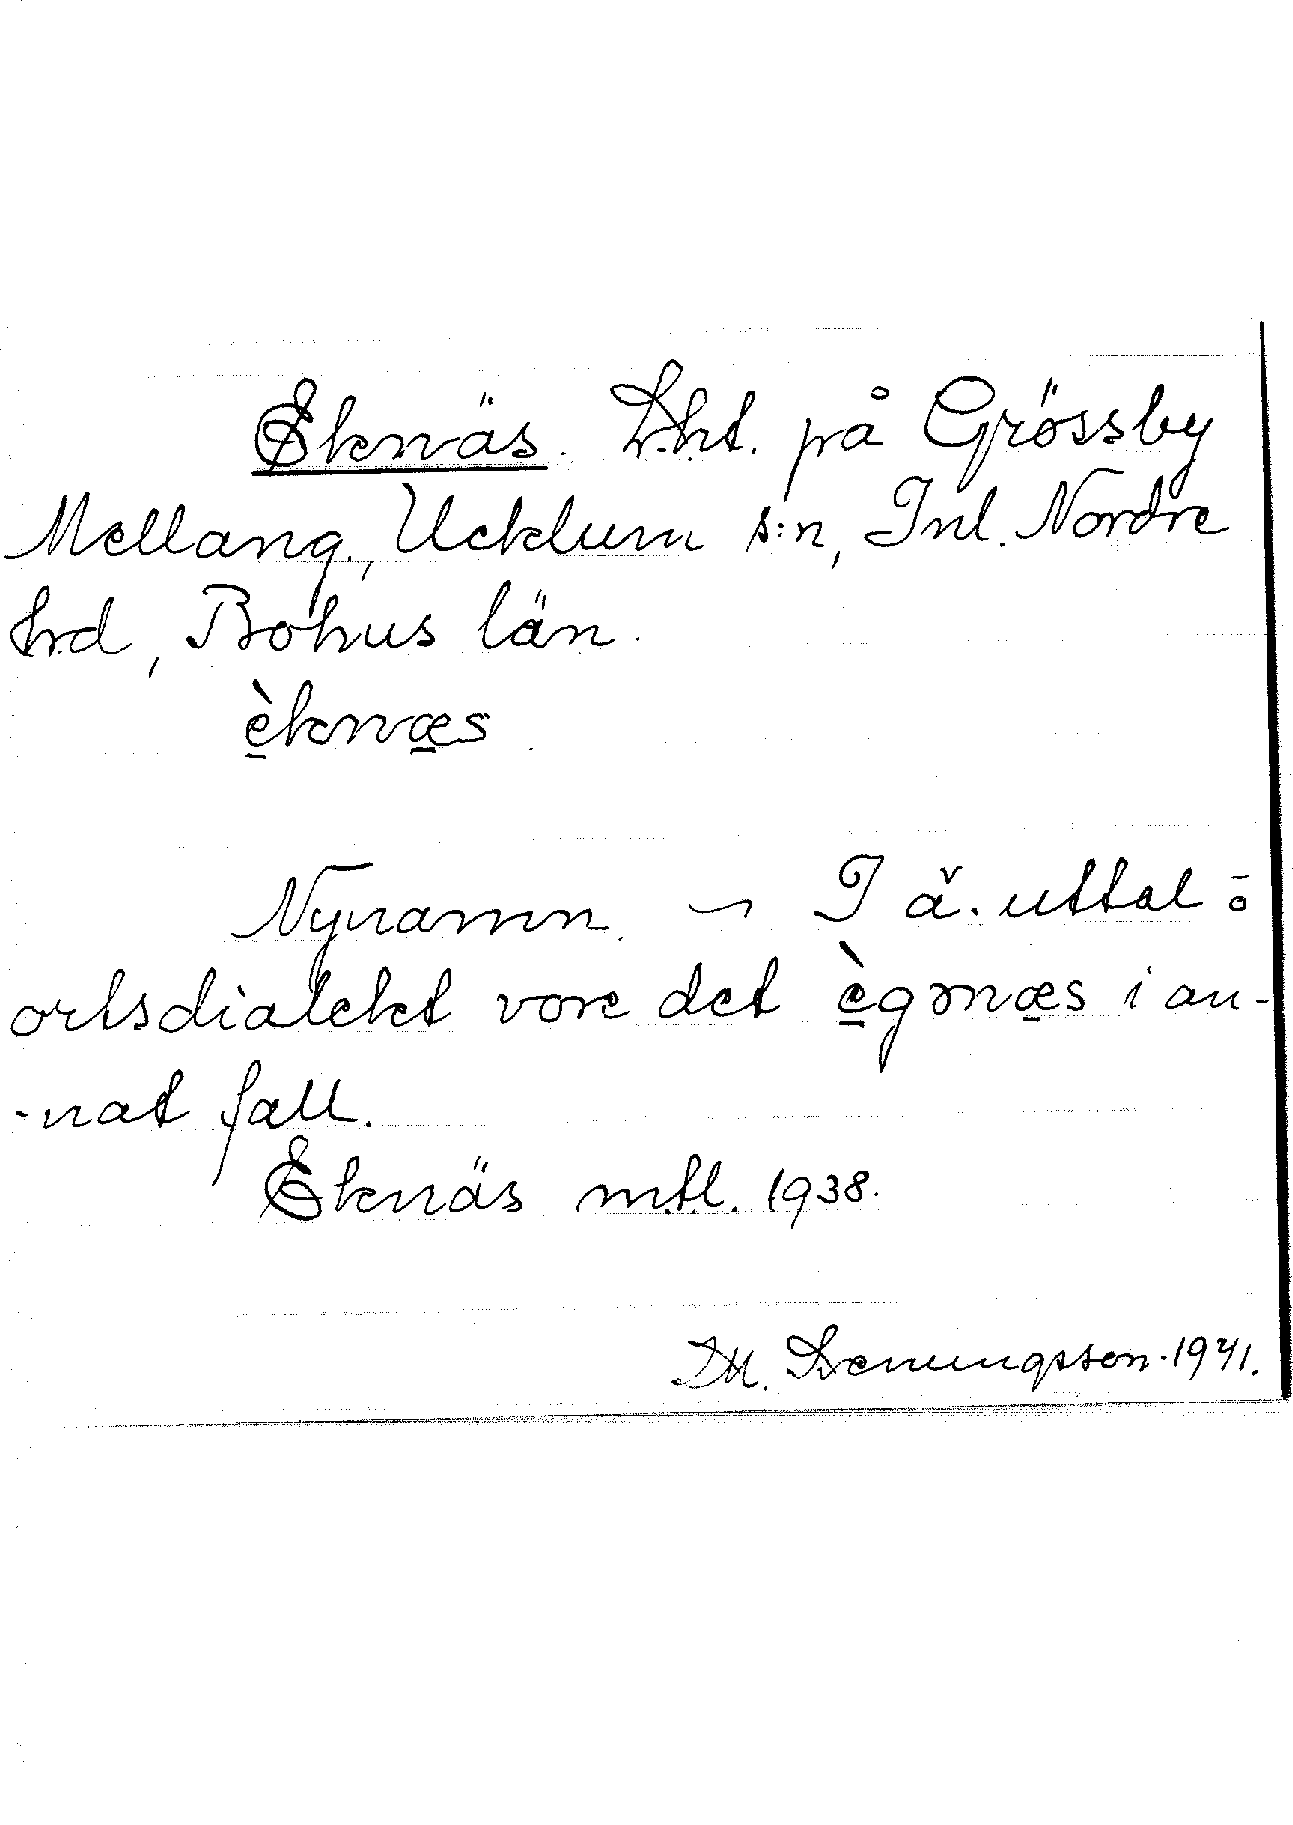 Eknäs. Lht. på Grössby
Mellang., Ucklum s:n, Inl. Nordre
hrd, Bohus län.
è̱knæ̱s
Nynamn. ~ I ä. uttal o
ortsdialekt vore det è̱gənæ̱s i an-
-nat fall.
Eknäs mtl. 1938.
D.H. 1941.